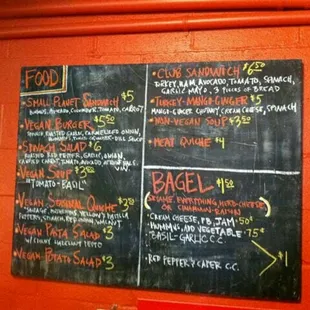 FOOD
• SMALL PLANET SANDWICH $5
HUMMUS, AVOCADO, CUCUMBER, TOMATO, CARROT
• VEGAN BURGER $5.50
ROASTED GARLIC, CARAMELIZED ONION,
SAUCE
• SPINACH SALAD $6
ROASTED RED PEPPER, GARLIC, ONION,
TOMATO, AVOCADO
• VEGAN SOUP
"TOMATO-BASIL"
• VEGAN SEASONAL QUICHE
SAUSAGE, MUSHROOM, YELLOW
• VEGAN PASTA SALAD $3
PESTO
• VEGAN POTATO SALAD $3
• CLUB SANDWICH $6.50
TURKEY, HAM, AVOCADO, TOMATO, SPINACH,
GARLIC MAYO, 3 PIECES OF BREAD
• TURKEY-MANGO-GINGER $5
MANGO-GINGER CHUTNEY, CREAM CHEESE, SPINACH
• NON-VEGAN SOUP $3.50
• MEAT QUICHE $4
BAGEL $1.50
(SESAME, EVERYTHING, HERB-CHEESE,
OR CINNAMON-RAISIN)
• CREAM CHEESE, PB, JAM .50¢
• HUMMUS, ADD VEGETABLE .75¢
• BASIL-GARLIC C.C.
• RED PEPPER & CAPER C.C.
$1